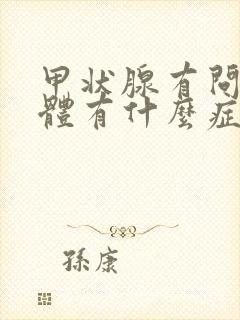 甲狀腺有問
體有什麼症
孫康